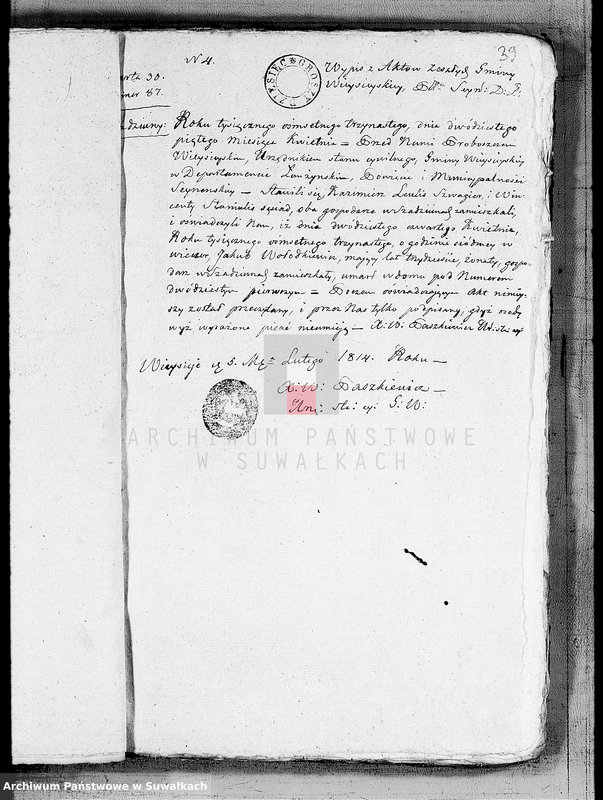 39
N 4.
DZIESIĘĆ GROSZY
Wypis z Aktów Zeszłych Gminy
Wieysieyskiey, Seyn: D: Ł:
30.
87.
Roku tysiącznego osmsetnego trzynastego, dnia dwódziestego
piątego Miesiąca Kwietnia = Przed Nami Proboszczem
Wieysieyskim, Urzędnikiem stanu cywilnego, Gminy Wieysieyskiey
w Departamencie Łomżyńskim, Powiecie i Municypalności
Seynenskiey — Stawili się Kazimierz Szwagier, i Win
centy sąsiad, oba gospodarze w zamieszkali,
i oświadczyli Nam, iż dnia dwódziestego czwartego Kwietnia,
Roku tysiącznego osmsetnego trzynastego, o godzinie siódmey w
wieczor, Jakub Wołodkiewicz, maiący lat trzydzieście, żonaty, gospo
darz w zamieszkały, umarł w domu pod Numerem
dwódziestym pierwszym = Poczem oświadczaiącym Akt niniey
szy został przeczytany, i przez Nas tylko podpisany, gdyż osoby
wyż wyrażone pisać nieumieią — X: W: Paszkiewicz
Wieysieje 5. Lutego 1814. Roku —
X: W: Paszkiewicz —
G: W:
ARCHIWUM PAŃSTWOWE
W SUWAŁKACH
Archiwum Państwowe w Suwałkach